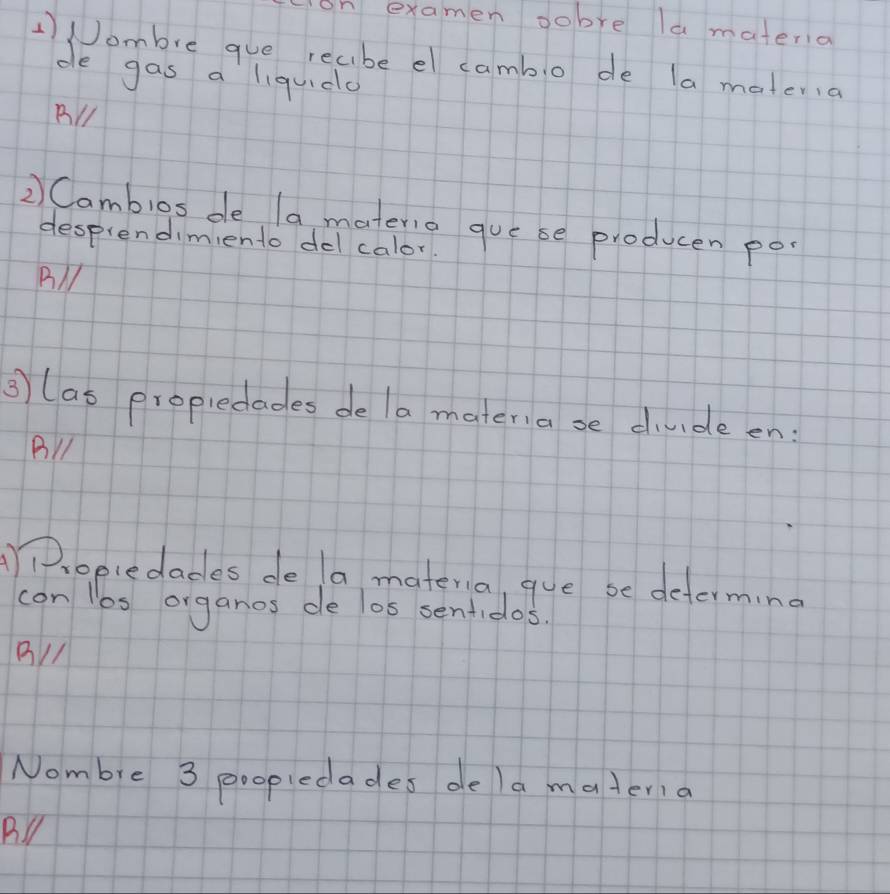 examen sobre la materia
1) Nombre que recibe el cambio de la materia
de gas a liquido
R//
2) Cambios de la materia que se producen por
desprendimiento del calor.
R//
3) Las propiedades de la materia se divide en:
R//
4) Propiedades de la materia que se determina
con los organos de los sentidos.
R//
Nombre 3 propiedades de la materia
R//